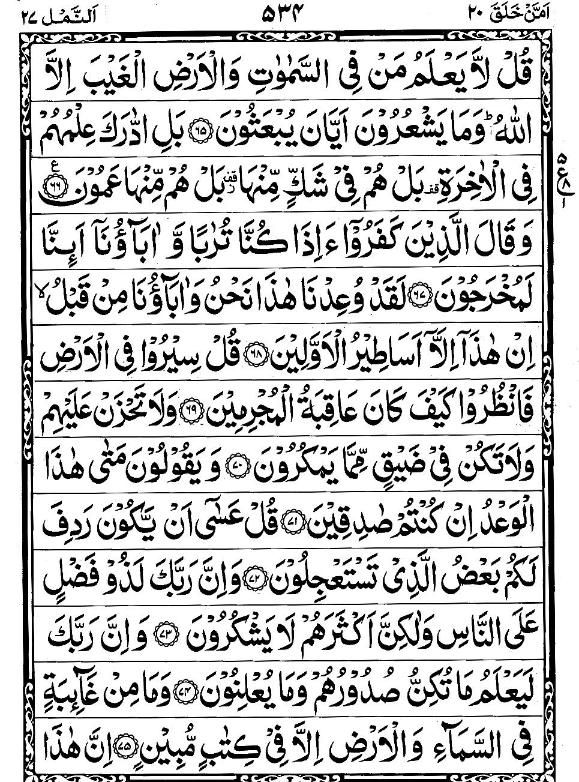 اَمَّنْ خَلَقَ ٢٠ ٥٣٤ اَلنَّمْل ٢٧
قُلْ لَّا يَعْلَمُ مَنْ فِى السَّمٰوٰتِ وَالْاَرْضِ الْغَيْبَ اِلَّا
اللّٰهُ ؕ وَمَا يَشْعُرُوْنَ اَيَّانَ يُبْعَثُوْنَ ﴿٦٥﴾ بَلِ ادّٰرَكَ عِلْمُهُمْ
فِى الْاٰخِرَةِ قف بَلْ هُمْ فِىْ شَكٍّ مِّنْهَا قف بَلْ هُمْ مِّنْهَا عَمُوْنَ ﴿٦٦﴾ ع
وَ قَالَ الَّذِيْنَ كَفَرُوْۤا ءَاِذَا كُنَّا تُرٰبًا وَّ اٰبَآؤُنَاۤ اَئِنَّا
لَمُخْرَجُوْنَ ﴿٦٧﴾ لَقَدْ وُعِدْنَا هٰذَا نَحْنُ وَاٰبَآؤُنَا مِنْ قَبْلُ ۙ
اِنْ هٰذَاۤ اِلَّاۤ اَسَاطِيْرُ الْاَوَّلِيْنَ ﴿٦٨﴾ قُلْ سِيْرُوْا فِى الْاَرْضِ
فَانْظُرُوْا كَيْفَ كَانَ عَاقِبَةُ الْمُجْرِمِيْنَ ﴿٦٩﴾ وَلَا تَحْزَنْ عَلَيْهِمْ
وَلَا تَكُنْ فِىْ ضَيْقٍ مِّمَّا يَمْكُرُوْنَ ﴿٧٠﴾ وَ يَقُوْلُوْنَ مَتٰى هٰذَا
الْوَعْدُ اِنْ كُنْتُمْ صٰدِقِيْنَ ﴿٧١﴾ قُلْ عَسٰۤى اَنْ يَّكُوْنَ رَدِفَ
لَكُمْ بَعْضُ الَّذِىْ تَسْتَعْجِلُوْنَ ﴿٧٢﴾ وَاِنَّ رَبَّكَ لَذُوْ فَضْلٍ
عَلَى النَّاسِ وَلٰكِنَّ اَكْثَرَهُمْ لَا يَشْكُرُوْنَ ﴿٧٣﴾ وَ اِنَّ رَبَّكَ
لَيَعْلَمُ مَا تُكِنُّ صُدُوْرُهُمْ وَمَا يُعْلِنُوْنَ ﴿٧٤﴾ وَمَا مِنْ غَآئِبَةٍ
فِى السَّمَآءِ وَالْاَرْضِ اِلَّا فِىْ كِتٰبٍ مُّبِيْنٍ ﴿٧٥﴾ اِنَّ هٰذَا